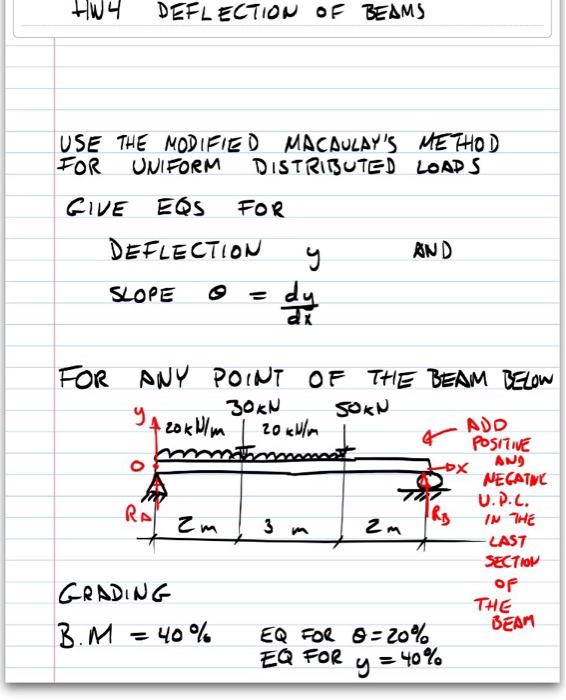 HW4 DEFLECTION OF BEAMS
USE THE MODIFIED MACAULAY'S METHOD
FOR UNIFORM DISTRIBUTED LOADS
GIVE EQS FOR
DEFLECTION y AND
SLOPE θ = dy/dx
FOR ANY POINT OF THE BEAM BELOW
30kN 50kN
y 20kN/m 20kN/m
O x
RA RB
2m 3m 2m
ADD
POSITIVE
AND
NEGATIVE
U.D.L.
IN THE
LAST
SECTION
OF
THE
BEAM
GRADING
B.M = 40% EQ FOR θ = 20%
EQ FOR y = 40%